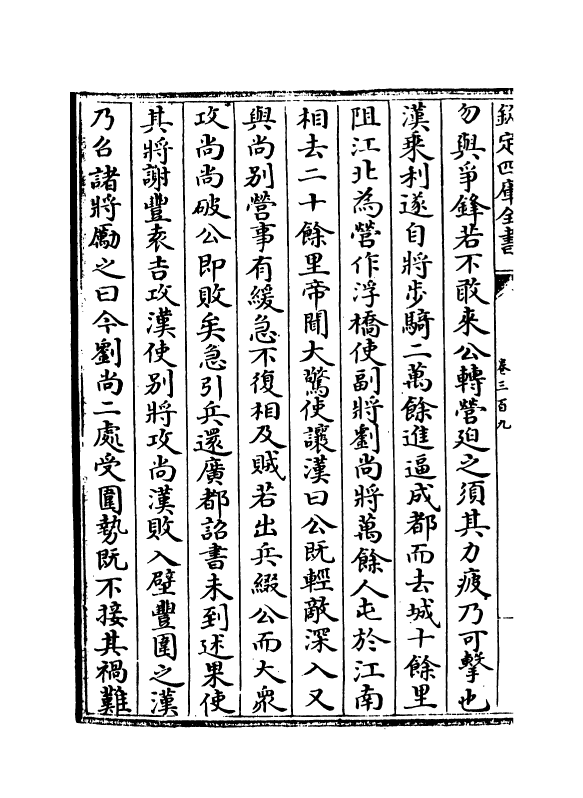 欽定四庫全書
卷三百九
勿與爭鋒若不敢來公轉營迫之須其力疲乃可擊也
漢乘利遂自將步騎二萬餘進逼成都而去城十餘里
阻江北為營作浮橋使副將劉尚將萬餘人屯於江南
相去二十餘里帝聞大驚使讓漢曰公既輕敵深入又
與尚别營事有緩急不復相及賊若出兵綴公而大衆
攻尚尚破公即敗矣急引兵還廣都詔書未到述果使
其將謝豐袁吉攻漢使别將攻尚漢敗入壁豐圍之漢
乃召諸將勵之曰今劉尚二處受圍勢既不接其禍難